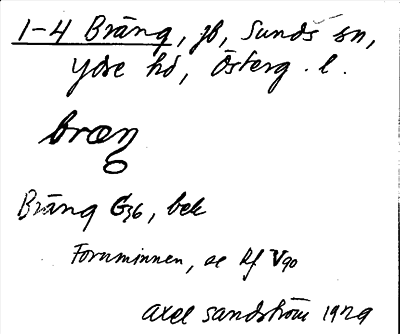 1-4 Bräng, jb, Sunds sn,
Ydre hd, Österg. l.
bræŋ
Bräng G36, bek
Fornminnen, se Rf V90
Axel Sandström 1929